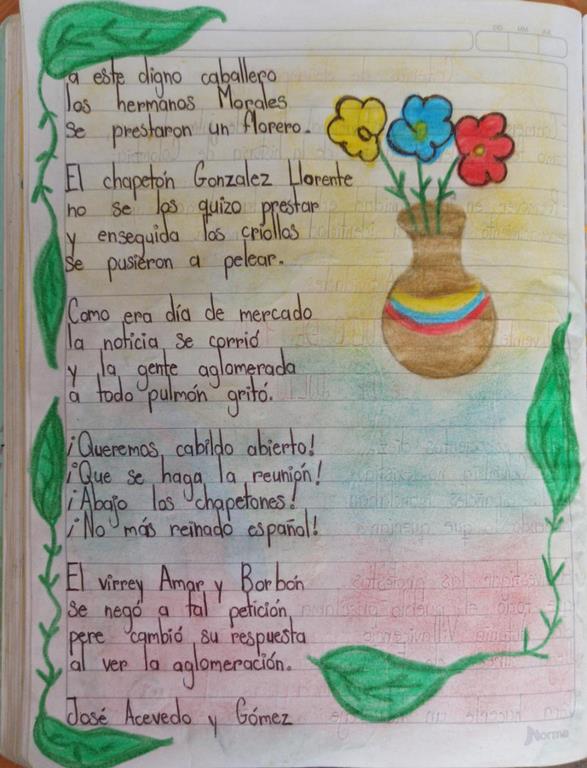 a este digno caballero
los hermanos Morales
se prestaron un florero.
El chapetón Gonzalez Llorente
no se los quizo prestar
y enseguida los criollos
se pusieron a pelear.
Como era día de mercado
la noticia se corrió
y la gente aglomerada
a todo pulmón gritó.
¡Queremos cabildo abierto!
¡Que se haga la reunión!
¡Abajo los chapetones!
¡No más reinado español!
El virrey Amar y Borbón
se negó a tal petición
pere cambió su respuesta
al ver la aglomeración.
José Acevedo y Gómez
Norma